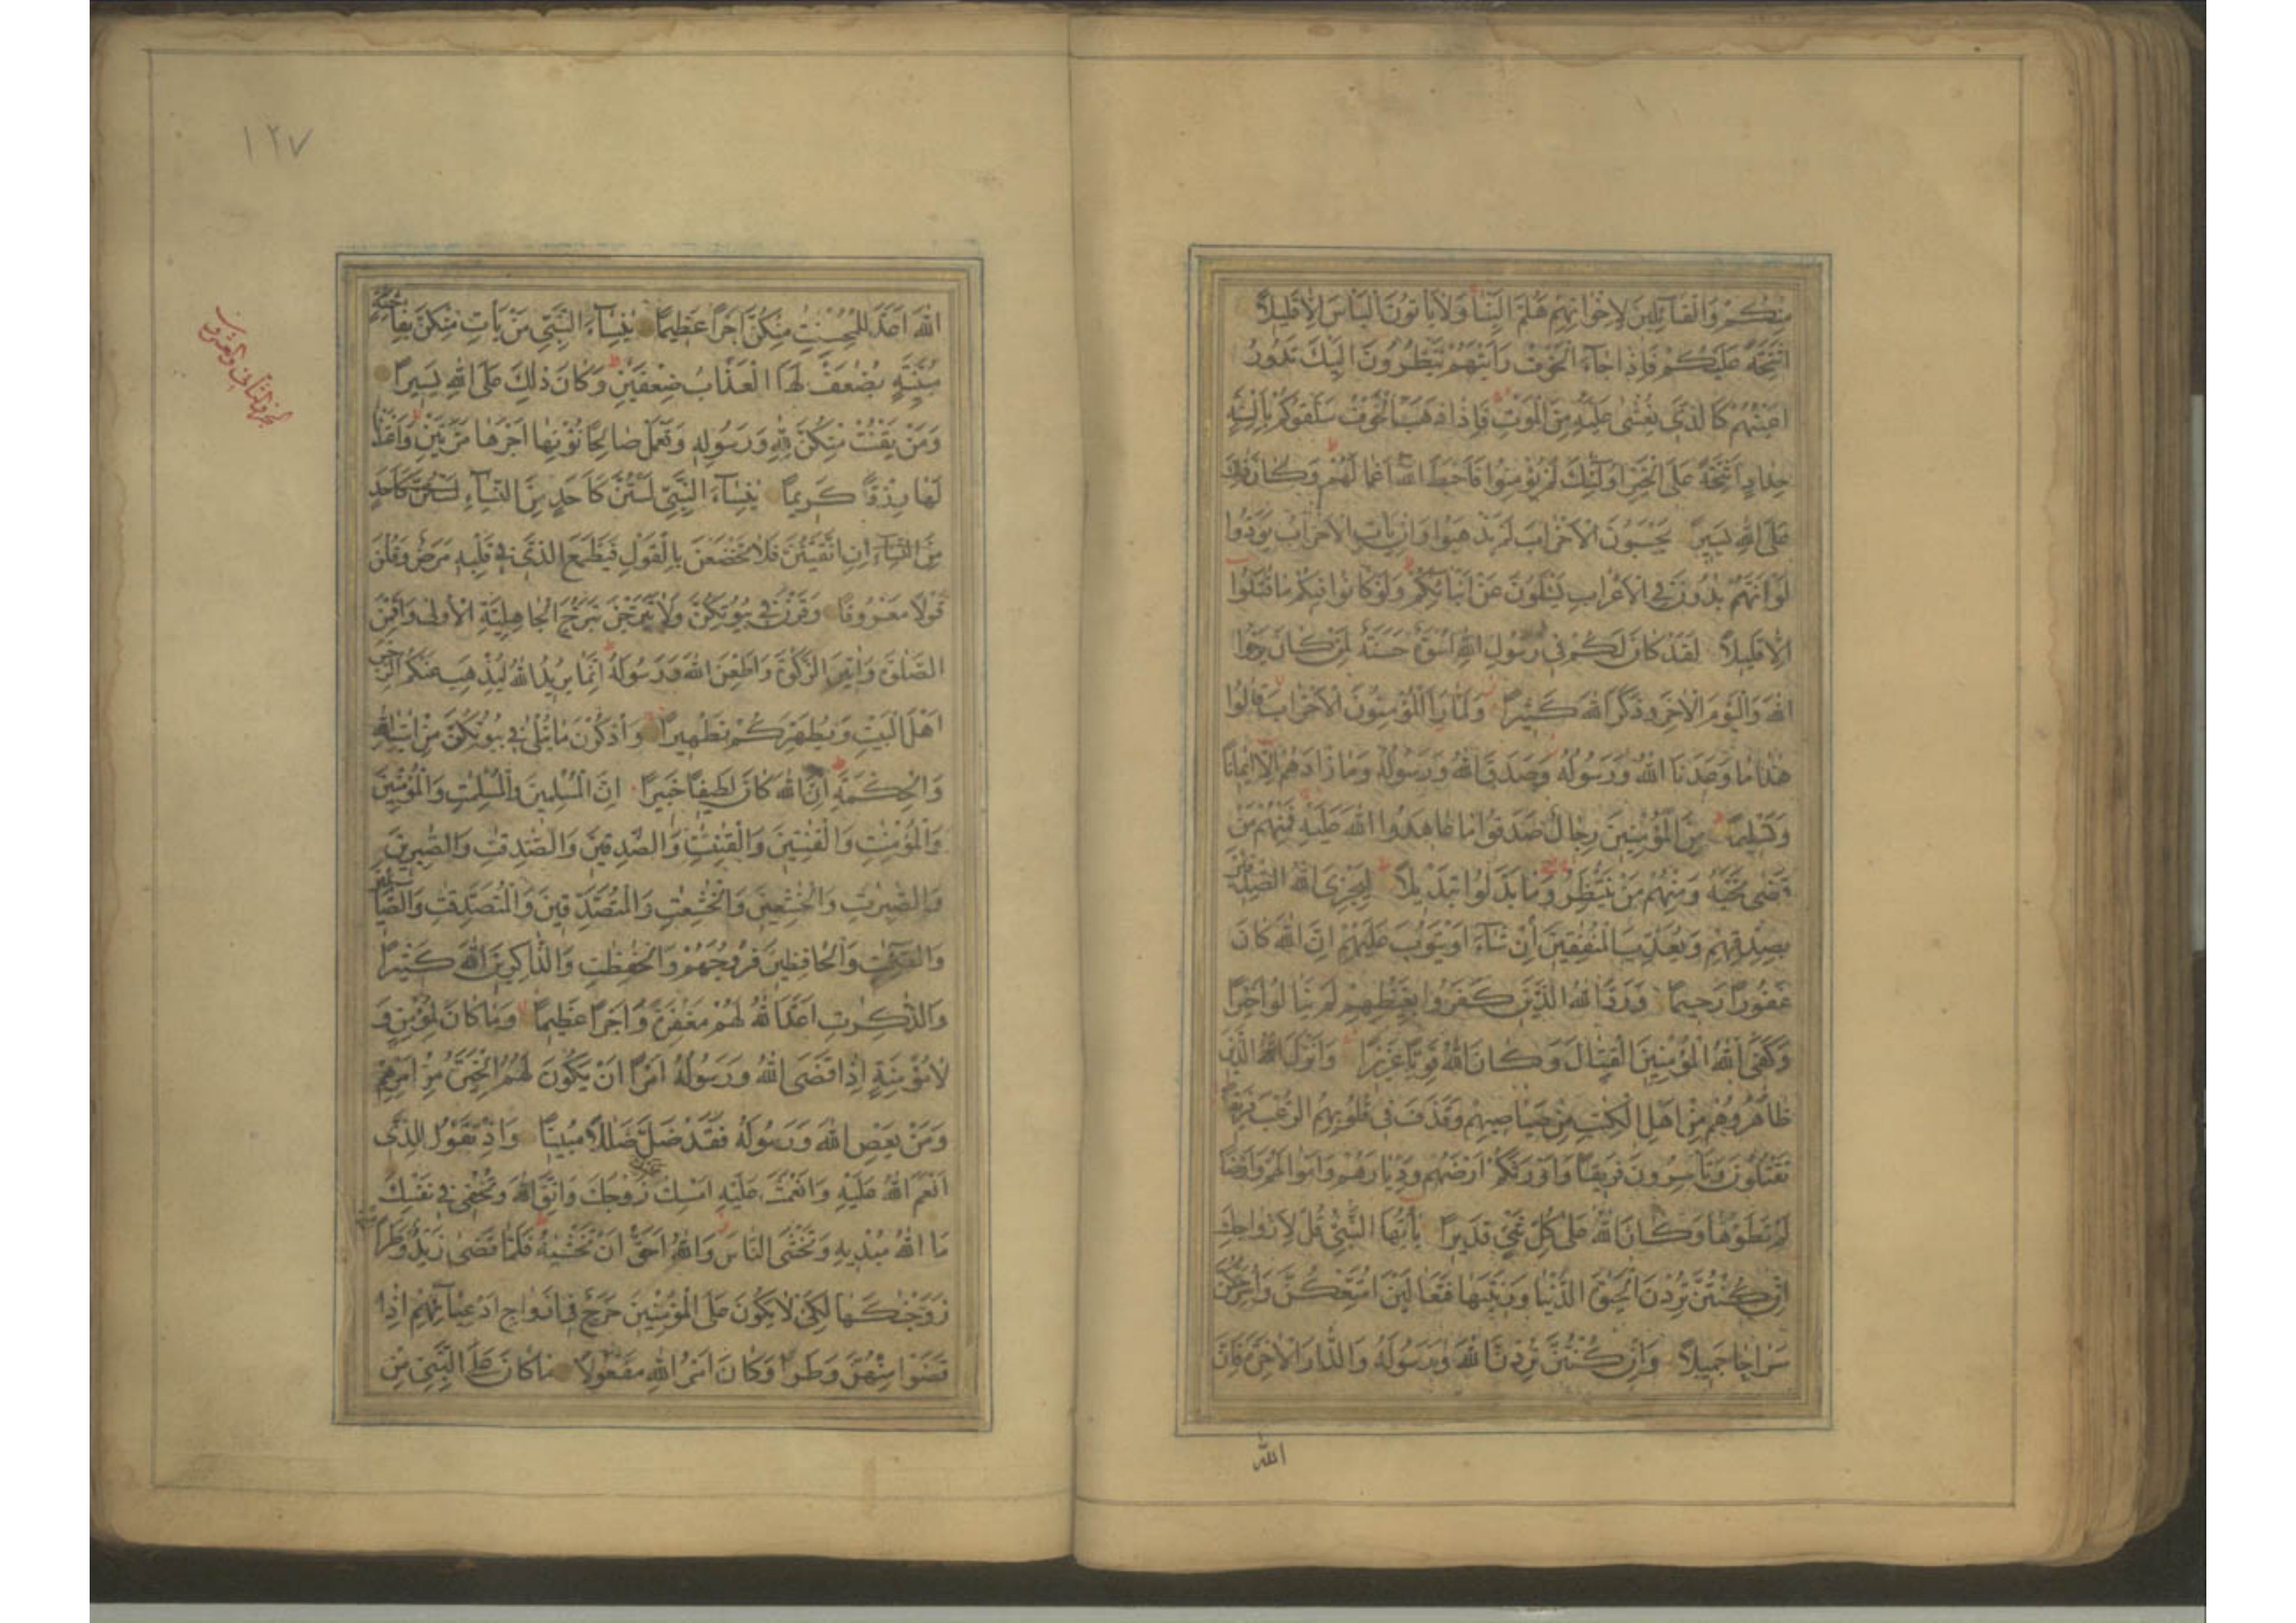 مِنْكُمْ وَالْقَآئِلِينَ لِاِخْوَانِهِمْ هَلُمَّ اِلَيْنَا وَلَا يَاْتُونَ الْبَاْسَ اِلَّا قَلِيلًا
اَشِحَّةً عَلَيْكُمْ فَاِذَا جَآءَ الْخَوْفُ رَاَيْتَهُمْ يَنْظُرُونَ اِلَيْكَ تَدُورُ
اَعْيُنُهُمْ كَالَّذِى يُغْشٰى عَلَيْهِ مِنَ الْمَوْتِ فَاِذَا ذَهَبَ الْخَوْفُ سَلَقُوكُمْ بِاَلْسِنَةٍ
حِدَادٍ اَشِحَّةً عَلَى الْخَيْرِ اُولٰٓئِكَ لَمْ يُؤْمِنُوا فَاَحْبَطَ اللّٰهُ اَعْمَالَهُمْ وَكَانَ ذٰلِكَ
عَلَى اللّٰهِ يَسِيرًا يَحْسَبُونَ الْاَحْزَابَ لَمْ يَذْهَبُوا وَاِنْ يَاْتِ الْاَحْزَابُ يَوَدُّوا
لَوْ اَنَّهُمْ بَادُونَ فِى الْاَعْرَابِ يَسْئَلُونَ عَنْ اَنْبَآئِكُمْ وَلَوْ كَانُوا فِيكُمْ مَا قٰتَلُوا
اِلَّا قَلِيلًا لَقَدْ كَانَ لَكُمْ فِى رَسُولِ اللّٰهِ اُسْوَةٌ حَسَنَةٌ لِمَنْ كَانَ يَرْجُوا
اللّٰهَ وَالْيَوْمَ الْاٰخِرَ وَذَكَرَ اللّٰهَ كَثِيرًا وَلَمَّا رَاَ الْمُؤْمِنُونَ الْاَحْزَابَ قَالُوا
هٰذَا مَا وَعَدَنَا اللّٰهُ وَرَسُولُهُ وَصَدَقَ اللّٰهُ وَرَسُولُهُ وَمَا زَادَهُمْ اِلَّا اِيمَانًا
وَتَسْلِيمًا مِنَ الْمُؤْمِنِينَ رِجَالٌ صَدَقُوا مَا عَاهَدُوا اللّٰهَ عَلَيْهِ فَمِنْهُمْ مَنْ
قَضٰى نَحْبَهُ وَمِنْهُمْ مَنْ يَنْتَظِرُ وَمَا بَدَّلُوا تَبْدِيلًا لِيَجْزِىَ اللّٰهُ الصّٰدِقِينَ
بِصِدْقِهِمْ وَيُعَذِّبَ الْمُنٰفِقِينَ اِنْ شَآءَ اَوْ يَتُوبَ عَلَيْهِمْ اِنَّ اللّٰهَ كَانَ
غَفُورًا رَحِيمًا وَرَدَّ اللّٰهُ الَّذِينَ كَفَرُوا بِغَيْظِهِمْ لَمْ يَنَالُوا خَيْرًا
وَكَفَى اللّٰهُ الْمُؤْمِنِينَ الْقِتَالَ وَكَانَ اللّٰهُ قَوِيًّا عَزِيزًا وَاَنْزَلَ اللّٰهُ الَّذِينَ
ظَاهَرُوهُمْ مِنْ اَهْلِ الْكِتٰبِ مِنْ صَيَاصِيهِمْ وَقَذَفَ فِى قُلُوبِهِمُ الرُّعْبَ فَرِيقًا
تَقْتُلُونَ وَتَاْسِرُونَ فَرِيقًا وَاَوْرَثَكُمْ اَرْضَهُمْ وَدِيَارَهُمْ وَاَمْوَالَهُمْ وَاَرْضًا
لَمْ تَطَؤُهَا وَكَانَ اللّٰهُ عَلٰى كُلِّ شَىْءٍ قَدِيرًا يَآ اَيُّهَا النَّبِىُّ قُلْ لِاَزْوَاجِكَ
اِنْ كُنْتُنَّ تُرِدْنَ الْحَيٰوةَ الدُّنْيَا وَزِينَتَهَا فَتَعَالَيْنَ اُمَتِّعْكُنَّ وَاُسَرِّحْكُنَّ
سَرَاحًا جَمِيلًا وَاِنْ كُنْتُنَّ تُرِدْنَ اللّٰهَ وَرَسُولَهُ وَالدَّارَ الْاٰخِرَةَ فَاِنَّ
اللّٰه
١٢٧
الجزو الثانى والعشرون
اللّٰهَ اَعَدَّ لِلْمُحْسِنٰتِ مِنْكُنَّ اَجْرًا عَظِيمًا يٰنِسَآءَ النَّبِىِّ مَنْ يَاْتِ مِنْكُنَّ بِفَاحِشَةٍ
مُبَيِّنَةٍ يُضٰعَفْ لَهَا الْعَذَابُ ضِعْفَيْنِ وَكَانَ ذٰلِكَ عَلَى اللّٰهِ يَسِيرًا
وَمَنْ يَقْنُتْ مِنْكُنَّ لِلّٰهِ وَرَسُولِهِ وَتَعْمَلْ صَالِحًا نُؤْتِهَا اَجْرَهَا مَرَّتَيْنِ وَاَعْتَدْنَا
لَهَا رِزْقًا كَرِيمًا يٰنِسَآءَ النَّبِىِّ لَسْتُنَّ كَاَحَدٍ مِنَ النِّسَآءِ لَسْتُنَّ كَاَحَدٍ
مِنَ النِّسَآءِ اِنِ اتَّقَيْتُنَّ فَلَا تَخْضَعْنَ بِالْقَوْلِ فَيَطْمَعَ الَّذِى فِى قَلْبِهِ مَرَضٌ وَقُلْنَ
قَوْلًا مَعْرُوفًا وَقَرْنَ فِى بُيُوتِكُنَّ وَلَا تَبَرَّجْنَ تَبَرُّجَ الْجَاهِلِيَّةِ الْاُولٰى وَاَقِمْنَ
الصَّلٰوةَ وَاٰتِينَ الزَّكٰوةَ وَاَطِعْنَ اللّٰهَ وَرَسُولَهُ اِنَّمَا يُرِيدُ اللّٰهُ لِيُذْهِبَ عَنْكُمُ الرِّجْسَ
اَهْلَ الْبَيْتِ وَيُطَهِّرَكُمْ تَطْهِيرًا وَاذْكُرْنَ مَا يُتْلٰى فِى بُيُوتِكُنَّ مِنْ اٰيٰتِ اللّٰهِ
وَالْحِكْمَةِ اِنَّ اللّٰهَ كَانَ لَطِيفًا خَبِيرًا اِنَّ الْمُسْلِمِينَ وَالْمُسْلِمٰتِ وَالْمُؤْمِنِينَ
وَالْمُؤْمِنٰتِ وَالْقٰنِتِينَ وَالْقٰنِتٰتِ وَالصّٰدِقِينَ وَالصّٰدِقٰتِ وَالصّٰبِرِينَ
وَالصّٰبِرٰتِ وَالْخٰشِعِينَ وَالْخٰشِعٰتِ وَالْمُتَصَدِّقِينَ وَالْمُتَصَدِّقٰتِ وَالصَّآئِمِينَ
وَالصّٰٓئِمٰتِ وَالْحَافِظِينَ فُرُوجَهُمْ وَالْحٰفِظٰتِ وَالذَّاكِرِينَ اللّٰهَ كَثِيرًا
وَالذّٰكِرٰتِ اَعَدَّ اللّٰهُ لَهُمْ مَغْفِرَةً وَاَجْرًا عَظِيمًا وَمَا كَانَ لِمُؤْمِنٍ وَ
لَا مُؤْمِنَةٍ اِذَا قَضَى اللّٰهُ وَرَسُولُهُ اَمْرًا اَنْ يَكُونَ لَهُمُ الْخِيَرَةُ مِنْ اَمْرِهِمْ
وَمَنْ يَعْصِ اللّٰهَ وَرَسُولَهُ فَقَدْ ضَلَّ ضَلٰلًا مُبِينًا وَاِذْ تَقُولُ لِلَّذِى
اَنْعَمَ اللّٰهُ عَلَيْهِ وَاَنْعَمْتَ عَلَيْهِ اَمْسِكْ عَلَيْكَ زَوْجَكَ وَاتَّقِ اللّٰهَ وَتُخْفِى فِى نَفْسِكَ
مَا اللّٰهُ مُبْدِيهِ وَتَخْشَى النَّاسَ وَاللّٰهُ اَحَقُّ اَنْ تَخْشٰيهُ فَلَمَّا قَضٰى زَيْدٌ مِنْهَا وَطَرًا
زَوَّجْنٰكَهَا لِكَىْ لَا يَكُونَ عَلَى الْمُؤْمِنِينَ حَرَجٌ فِى اَزْوَاجِ اَدْعِيَآئِهِمْ اِذَا
قَضَوْا مِنْهُنَّ وَطَرًا وَكَانَ اَمْرُ اللّٰهِ مَفْعُولًا مَا كَانَ عَلَى النَّبِىِّ مِنْ